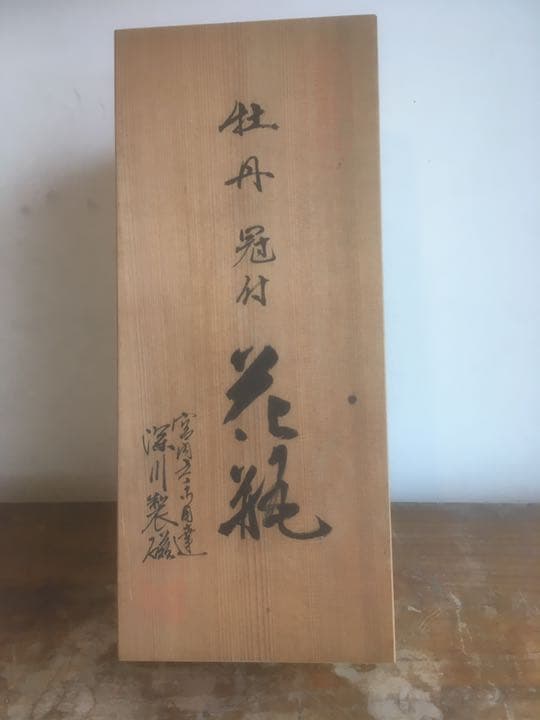 牡丹 冠付 花瓶
宮内庁御用達
深川製磁